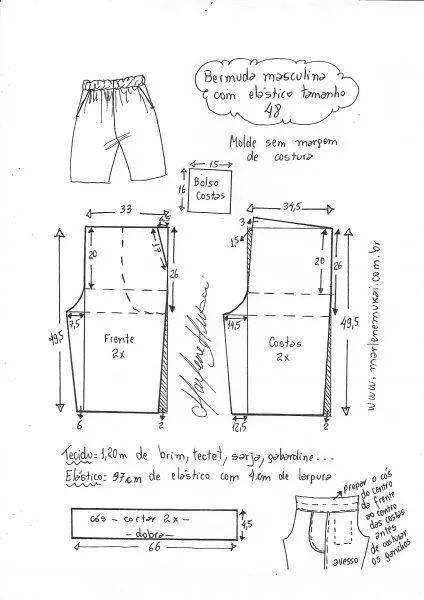 Bermuda masculina
com elástico tamanho
48
Molde sem margem
de costura
15
16
Bolso
Costas
33
4,5
17
20
26
49,5
7,5
Frente
2x
6
2
34,5
3
1,5
20
26
49,5
14,5
Costas
2x
12,5
2
Marlene Mukai
www.marlenemukai.com.br
Tecido= 1,20m de brim, tectel, sarja, gabardine...
Elástico= 97cm de elástico com 4cm de largura
cós - cortar 2x -
- dobra -
4,5
66
pregar o cós
do centro
da frente
ao centro
das costas
antes
de costurar
os ganchos
avesso